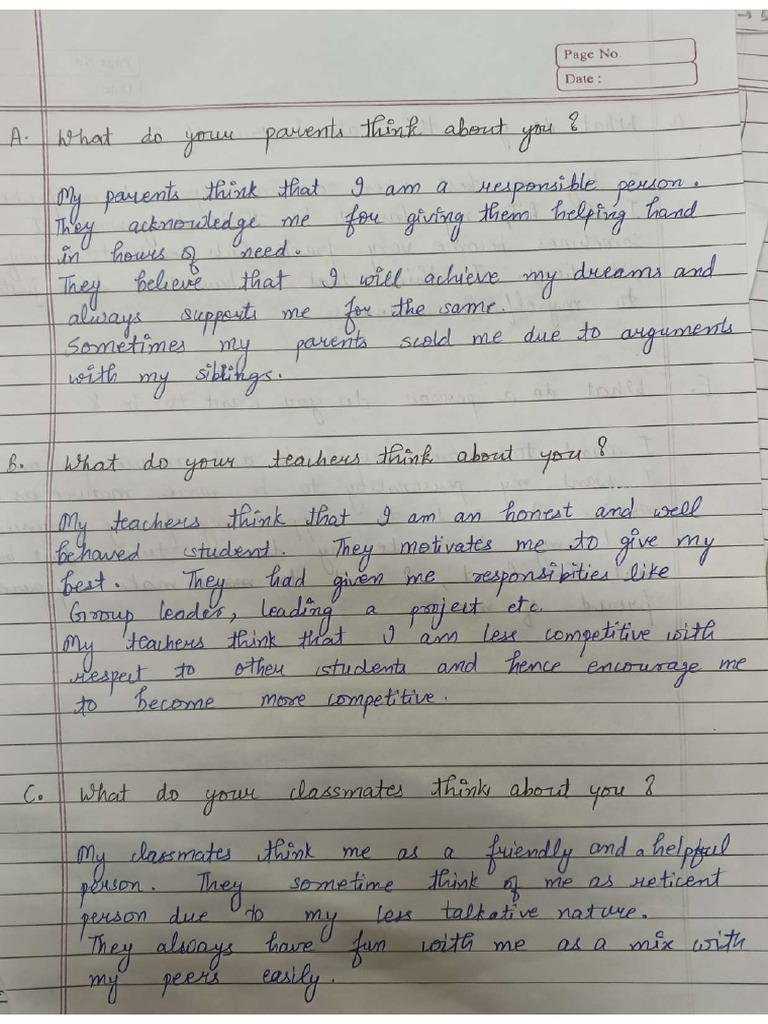 Page No.
Date :
A. What do your parents think about you ?
My parents think that I am a responsible person.
They acknowledge me for giving them helping hand
in hours of need.
They believe that I will achieve my dreams and
always supports me for the same.
Sometimes my parents scold me due to arguments
with my siblings.
B. What do your teachers think about you ?
My teachers think that I am an honest and well
behaved student. They motivates me to give my
best. They had given me responsibities like
Group leader, leading a project etc.
My teachers think that I am less competitive with
respect to other students and hence encourage me
to become more competitive.
C. What do your classmates think about you ?
My classmates think me as a friendly and a helpful
person. They sometime think of me as reticent
person due to my less talkative nature.
They always have fun with me as a mix with
my peers easily.